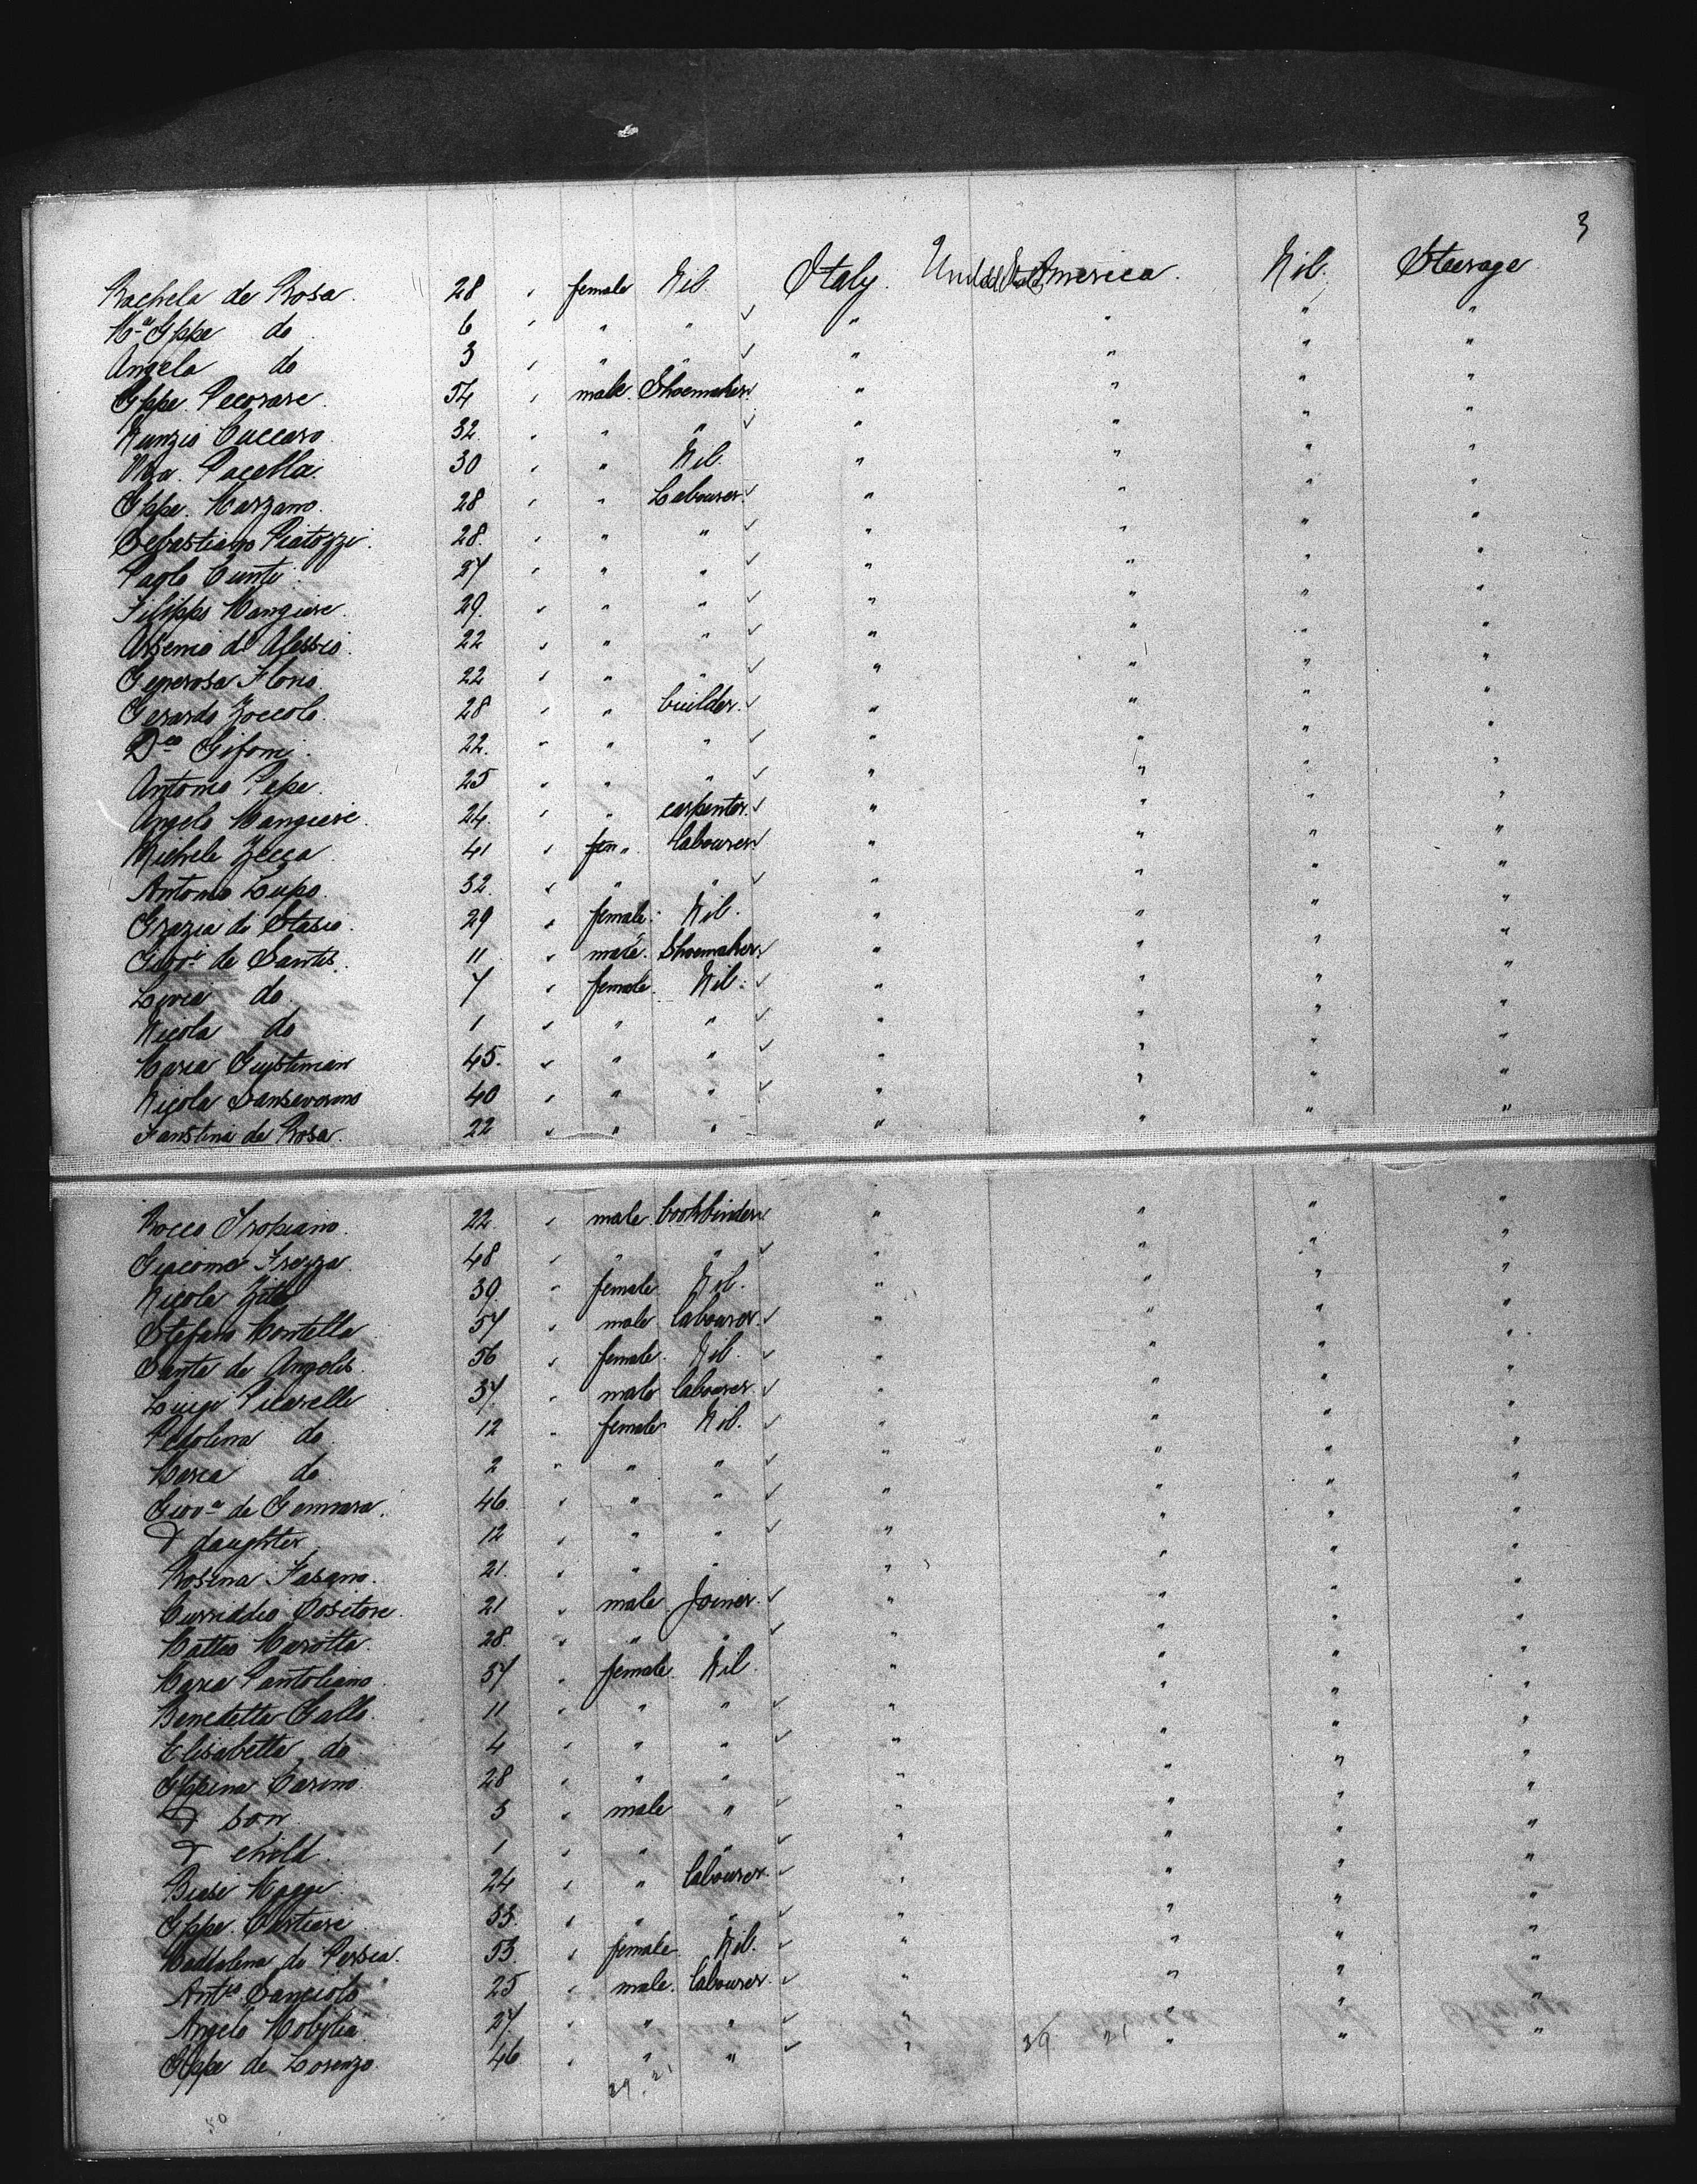 3
Rachela de Rosa. 28 " female Nil Italy. United States America. Nil. Steerage
Mª Gppe do 6 " " " " " " "
Angela do 3 " " " " " " "
Gppe. Pecorare. 54 " male. Shoemaker " " " "
Nunzio Cuccaro. 32. " " " " " " "
Vza. Pacella. 30 " " Nil. " " " "
Gppe. Marzano. 28 " " Labourer " " " "
Sebastiano Piatozzi. 28. " " " " " " "
Paolo Cunti. 27 " " " " " " "
Filippo Mangiere. 29. " " " " " " "
Arsenio di Alessio. 22 " " " " " " "
Generosa Florio. 22 " " " " " " "
Gerardo Zoccolo. 28 " " builder. " " " "
Dco Gifoni. 22. " " " " " " "
Antonio Pepe. 25 " " " " " " "
Angelo Mangiere. 24. " " carpenter. " " " "
Michele Zecca 41 " " labourer " " " "
Antonio Lupo. 32. " " " " " " "
Grazia di Stasio. 29 " female. Nil. " " " "
Giovi de Santis. 11 " male. Shoemaker " " " "
Livia do. 7 " female. Nil. " " " "
Nicola do 1 " " " " " " "
Maria Gustiman 45. " " " " " " "
Nicola Sanseverino 40 " " " " " " "
Faustina de Rosa. 22 " " " " " " "
Rocco Tropiano. 22. " male. bookbinder " " " "
Giacomo Frezza. 48 " " " " " " "
Nicola Zito 39. " female Nil. " " " "
Stefano Montella 57 " male labourer. " " " "
Santa de Angelis. 56 " female. Nil. " " " "
Luigi Picarelli 37. " male labourer. " " " "
Pellolina do. 12 " female Nil. " " " "
Maria do. 2 " " " " " " "
Giovª de Gennara. 46. " " " " " " "
& daughter 12 " " " " " " "
Rosina Fasano. 21. " " " " " " "
Curriddio Cositore. 21 " male Joiner. " " " "
Matteo Marotta. 28. " " " " " " "
Maria Pantoliano. 37 " female. Nil. " " " "
Benedetta Gallo. 11 " " " " " " "
Elisabetta do 4 " " " " " " "
Gppina Carino. 28 " " " " " " "
& son. 3 " male " " " " "
& child. 1 " " " " " " "
Biase Maggi. 24 " " labourer. " " " "
Gppe. Cartiere. 33. " " " " " " "
Maddalena de Persia. 53. " female. Nil. " " " "
Anto Sangiolo 25 " male. labourer. " " " "
Angelo Mobylia. 27. " " " " " " "
Gppe de Lorenzo. 46 " " " " " " "
29. 21
29 21
50